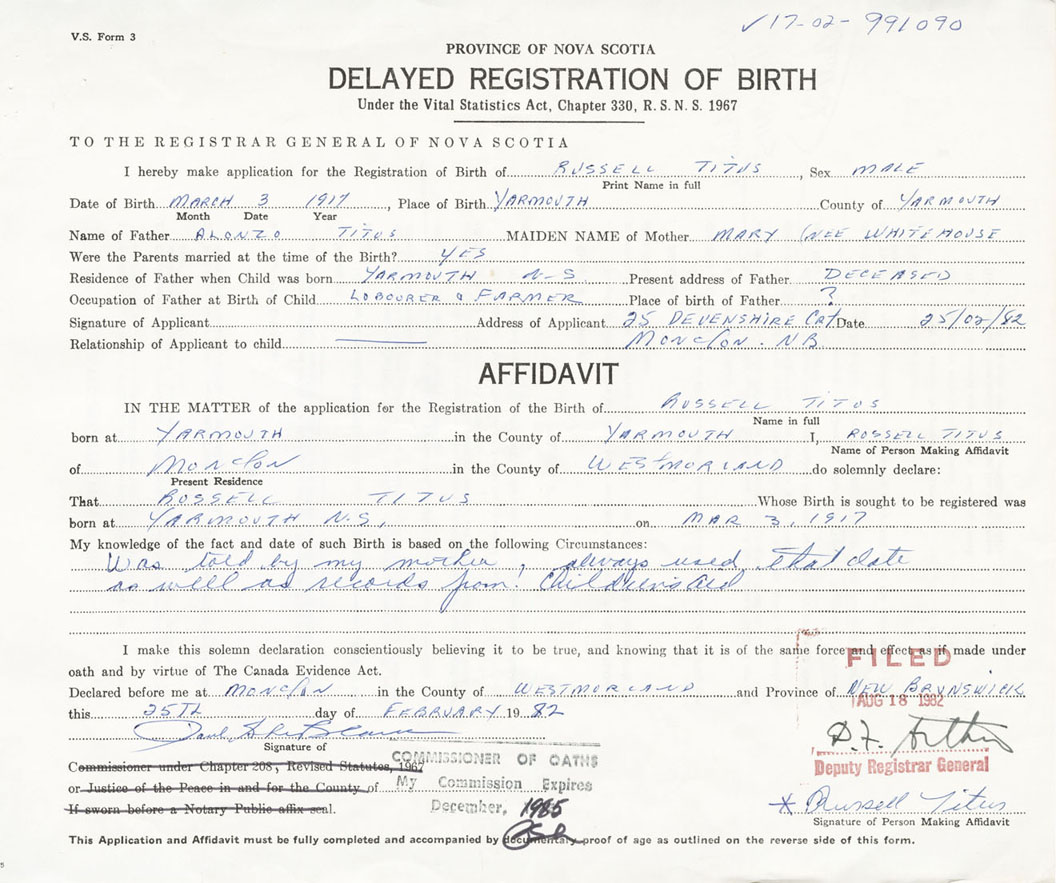 ✓17-02- 991090
V.S. Form 3
PROVINCE OF NOVA SCOTIA
DELAYED REGISTRATION OF BIRTH
Under the Vital Statistics Act, Chapter 330, R. S. N. S. 1967
TO THE REGISTRAR GENERAL OF NOVA SCOTIA
I hereby make application for the Registration of Birth of RUSSELL TITUS, Sex MALE
Print Name in full
Date of Birth MARCH 3 1917, Place of Birth YARMOUTH County of YARMOUTH
Month Date Year
Name of Father ALONZO TITUS MAIDEN NAME of Mother MARY (NEE WHITEHOUSE
Were the Parents married at the time of the Birth? YES
Residence of Father when Child was born YARMOUTH N-S Present address of Father DECEASED
Occupation of Father at Birth of Child LOBOURER & FARMER Place of birth of Father ?
Signature of Applicant Address of Applicant 25 DEVENSHIRE Crt Date 25/02/82
Relationship of Applicant to child MONCTON. NB
AFFIDAVIT
IN THE MATTER of the application for the Registration of the Birth of RUSSELL TITUS
Name in full
born at YARMOUTH in the County of YARMOUTH I, RUSSELL TITUS
Name of Person Making Affidavit
of MONCTON in the County of WESTMORLAND do solemnly declare:
Present Residence
That RUSSELL TITUS Whose Birth is sought to be registered was
born at YARMOUTH N.S, on MAR 3, 1917
My knowledge of the fact and date of such Birth is based on the following Circumstances:
Was told by my mother, always used that date
as well as records from! Childrens Aid
I make this solemn declaration conscientiously believing it to be true, and knowing that it is of the same force and effect as if made under
oath and by virtue of The Canada Evidence Act.
FILED
Declared before me at MONCTON in the County of WESTMORLAND and Province of NEW BRUNSWICK
AUG 18 1982
this 25TH day of FEBRUARY 19 82
Signature of
Commissioner under Chapter 208, Revised Statutes, 1967
COMMISSIONER OF OATHS
Deputy Registrar General
or Justice of the Peace in and for the County of
My Commission Expires
If sworn before a Notary Public affix seal.
December, 1985
* Russell Titus
Signature of Person Making Affidavit
This Application and Affidavit must be fully completed and accompanied by documentary proof of age as outlined on the reverse side of this form.